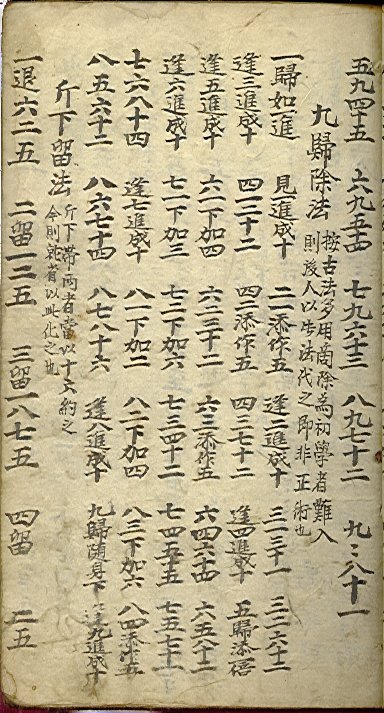 五九四十五 六九五十四 七九六十三 八九七十二 九〻八十一
九歸除法
按古法多用商除為初學者難入
則後人以此法代之即非正術也
一歸如一進 見一進成十 二一添作五 逢二進成十 三一三十一 三二六十二
逢三進成十 四一二十二 四二添作五 四三七十二 逢四進成十 五歸添倍
逢五進成十 六一下加四 六二三十二 六三添作五 六四六十四 六五八十二
逢六進成十 七一下加三 七二下加六 七三四十二 七四五十五 七五七十一
七六八十四 逢七進成十 八一下加二 八二下加四 八三下加六 八四添作五
八五六十二 八六七十四 八七八十六 逢八進成十 九歸隨身下 逢九進成十
斤下留法
斤下帶兩者當以十六約之
今則就省以此化之也
一退六二五 二留一二五 三留一八七五 四留 二五